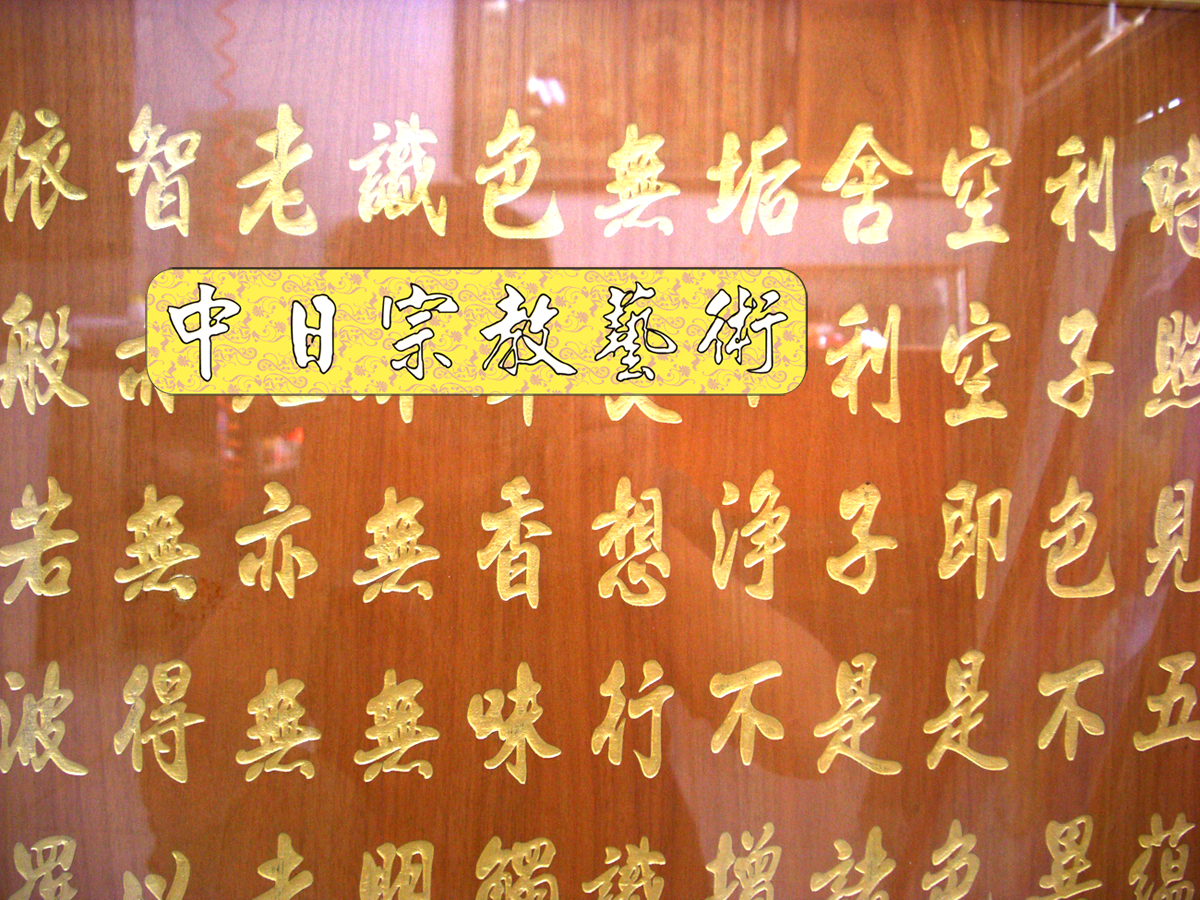 時照見五蘊
利子色不異
空空即是色
舍利子是諸
垢淨不增
無想行識
色香味觸
識無無明
老亦無老
智亦無得以
依般若波羅
中日宗教藝術